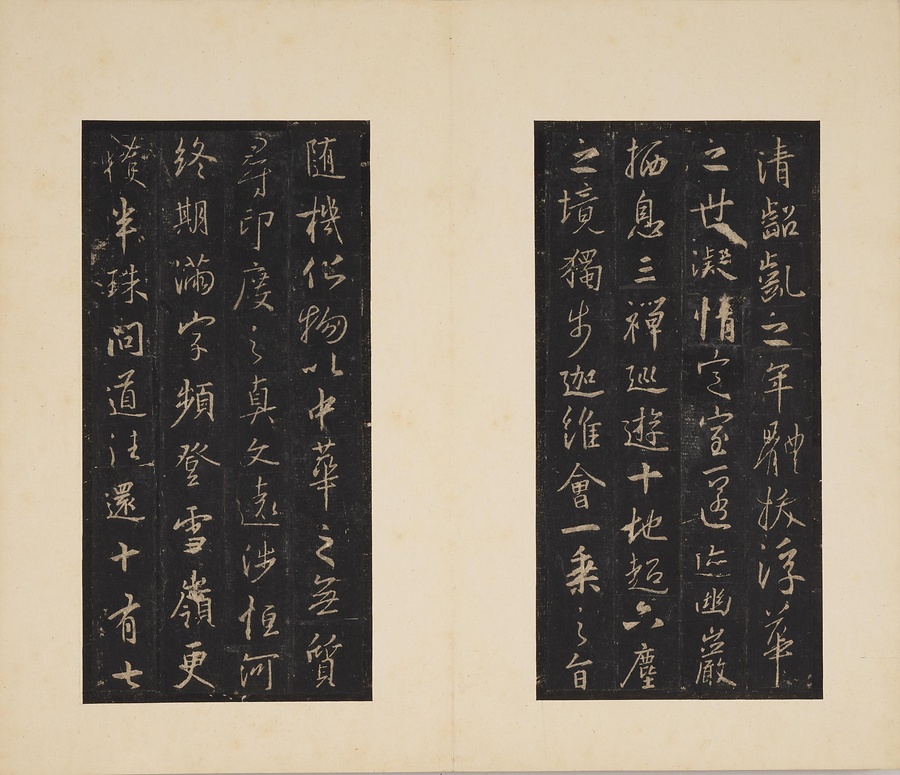 清齠齔之年體拔浮華
之世凝情定室匿迹幽巖
栖息三禪巡遊十地超六塵
之境獨步迦維會一乘之旨
随機化物以中華之無質
尋印度之真文遠涉恒河
終期滿字頻登雪嶺更
獲半珠問道往還十有七